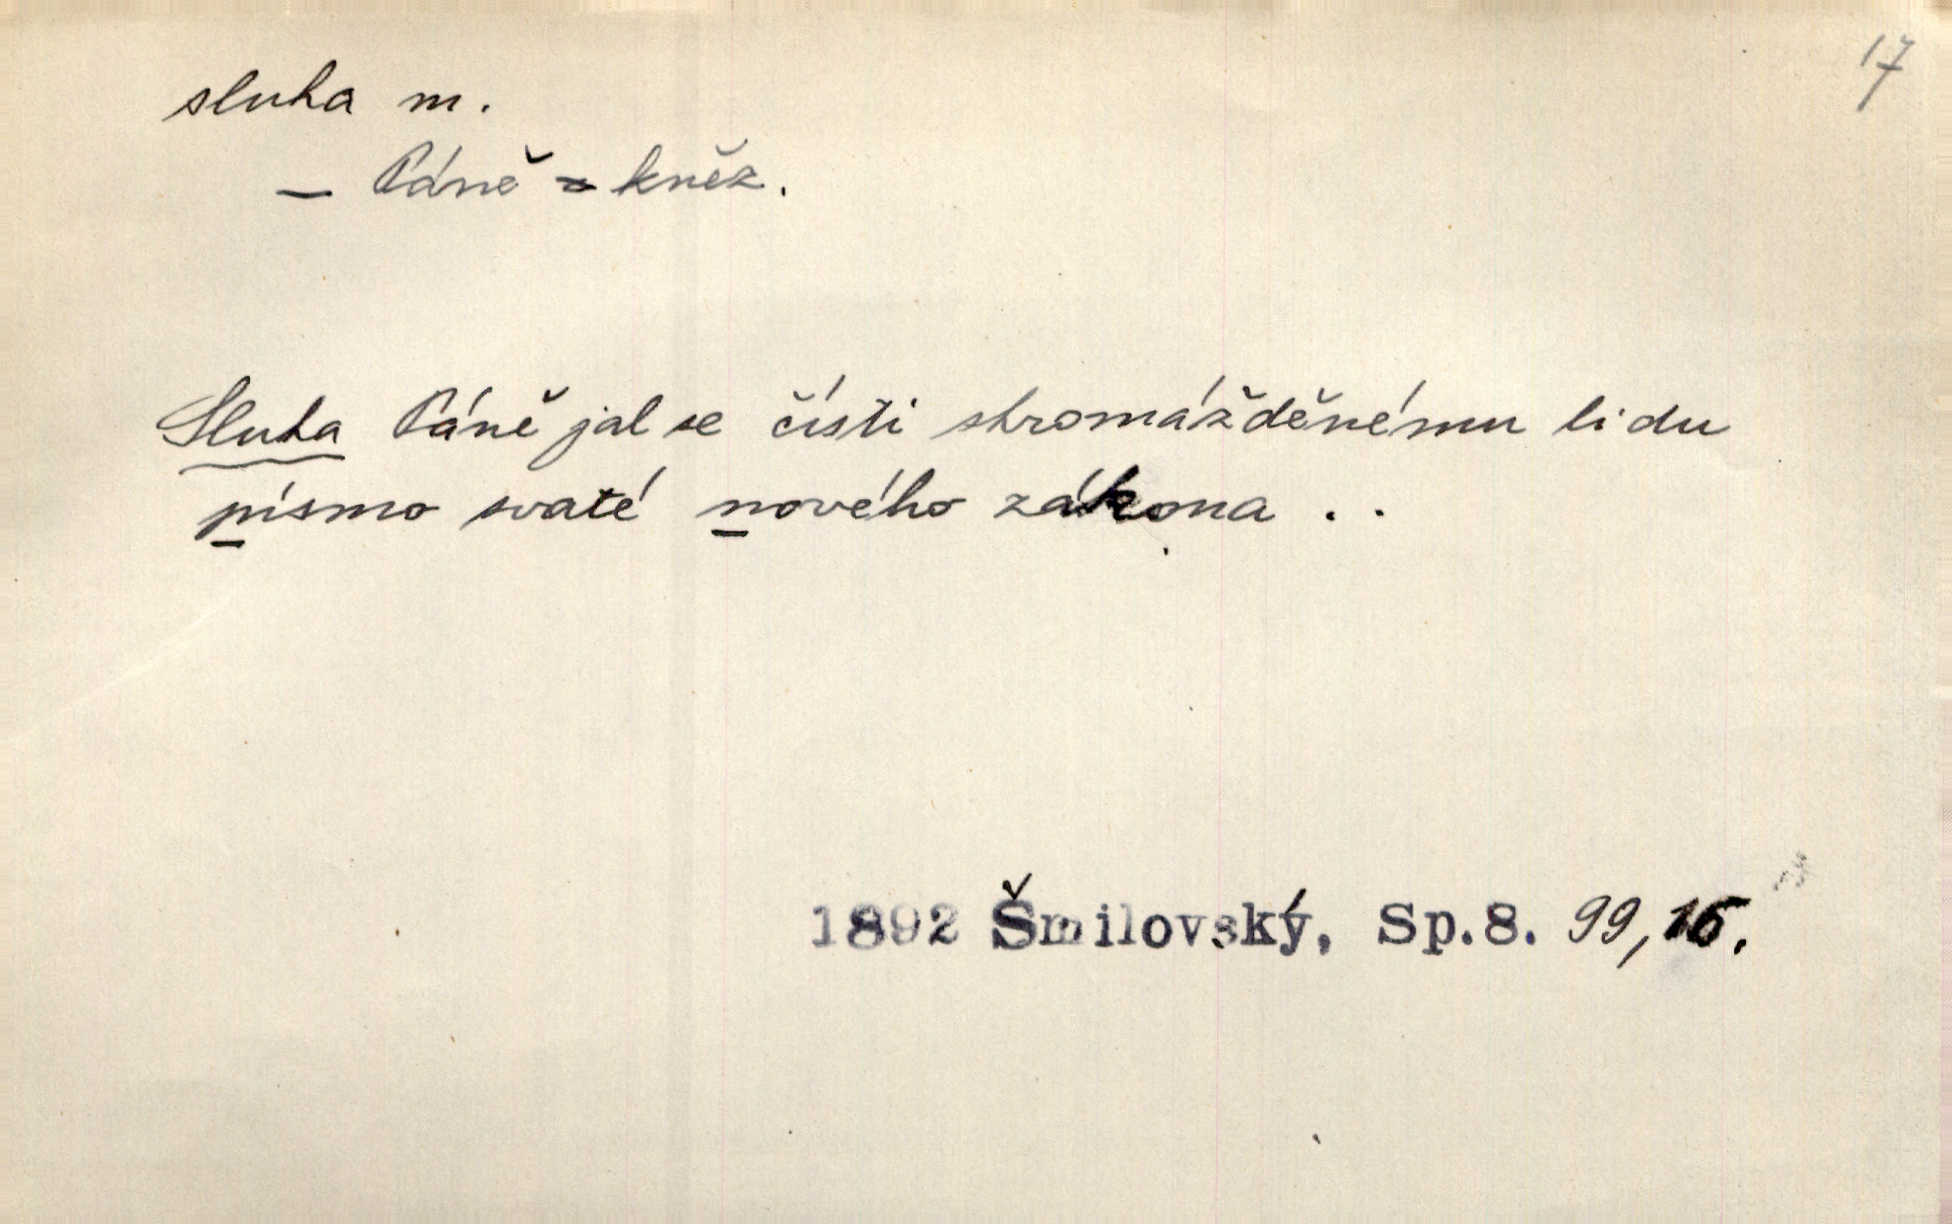 17
sluha m.
— Páně = kněz.
Sluha Páně jal se čísti shromážděnému lidu
písmo svaté nového zákona . .
1892 Šmilovský, Sp.8. 99, 16.